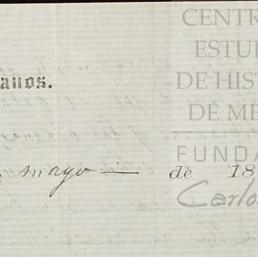 CENTR
ESTU
DE HIS
anos.
DE ME
FUNDA
mayo de 18
Carlo